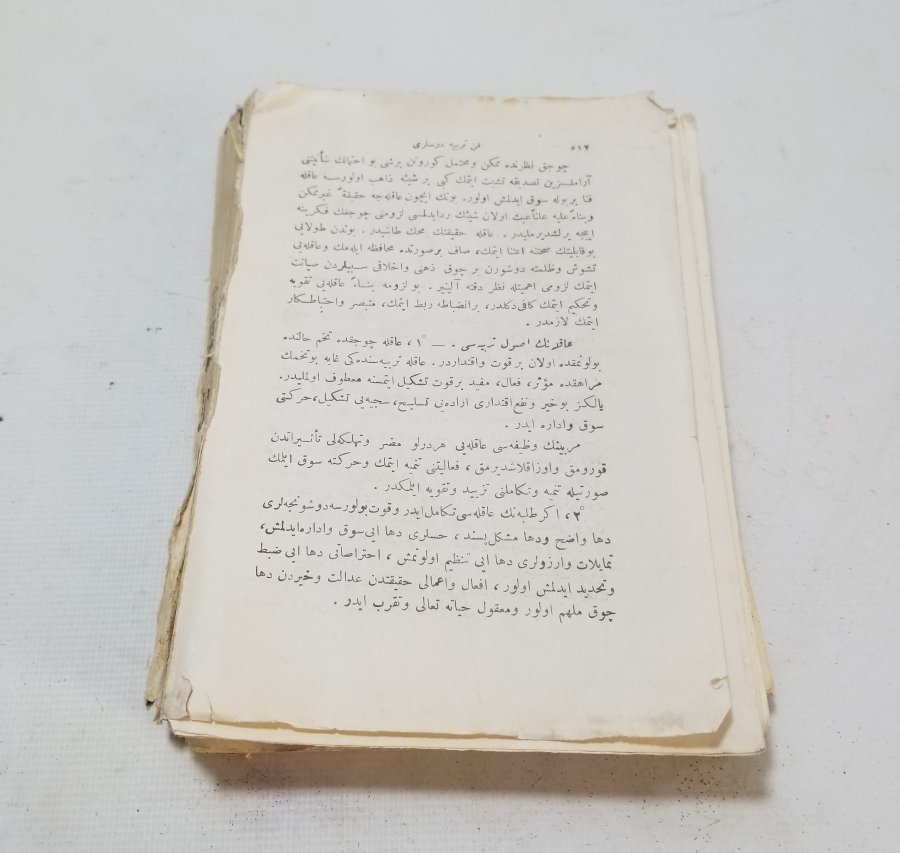 ٥١٢ فن تربيه درسلرى
چوجق نظرنده ممكن ومحتمل كورونن برشى بو احتمالك شأنيتنى
آرامقسزين تصديقه تشبت ايتمك كبى بر شيئه ذاهب اولورسه عاقله
فنا بر يوله سوق ايدلمش اولور. بونك ايچون عاقله جه حقيقةً غيرممكن
وبناءً عليه علناً عبث اولان شيئك ردايدلمسى لزومنى چوجغك فكرينه
ايجه يرلشديرمليدر. عاقله حقيقتك محك طاشيدر. بوندن طولايى
بوقابليتك صحتنه اعتنا ايتمك، صاف برصورتده محافظه ايله مك وعاقله يى
تشوش وظلمته دوشورن بر چوق ذهنى واخلاقى سببلردن صيانت
ايتمك لزومى اهميتله نظر دقته آلينير. بو لزومه بناءً عاقله يى تقويه
وتحكيم ايتمك كافى دكلدر، برانضباطه ربط ايتمك، متبصر واحتياطكار
ايتمك لازمدر.
عاقله نك اصول تربيه سى. — ١°، عاقله چوجقده تخم حالنده
بولونمقده اولان بر قوت واقتداردر. عاقله تربيه سنده كى غايه بوتخمك
مراهقده مؤثر، فعال، مفيد بر قوت تشكيل ايتمسنه معطوف اولمليدر.
يالكز بوخير ونفع اقتدارى اراده يى تسليح، سجيه يى تشكيل، حركتى
سوق واداره ايدر.
مربينك وظيفه سى عاقله يى هردرلو مضر وتهلكه لى تأثيراتدن
قورومق واوزاقلاشديرمق، فعاليتنى تنميه ايتمك وحركته سوق ايلمك
صورتيله تنميه وتكاملنى تزييد وتقويه ايلمكدر.
٢°، اكر طلبه نك عاقله سى تكامل ايدر وقوت بولورسه دوشونجه لرى
دها واضح ودها مشكل پسند، حسلرى دها ايى سوق واداره ايدلمش،
تمايلات وارزولرى دها ايى تنظيم اولونمش، احتراصاتى دها ايى ضبط
وتحديد ايدلمش اولور، افعال واعمالى حقيقتدن عدالت وخيردن دها
چوق ملهم اولور ومعقول حياته تعالى وتقرب ايدر.